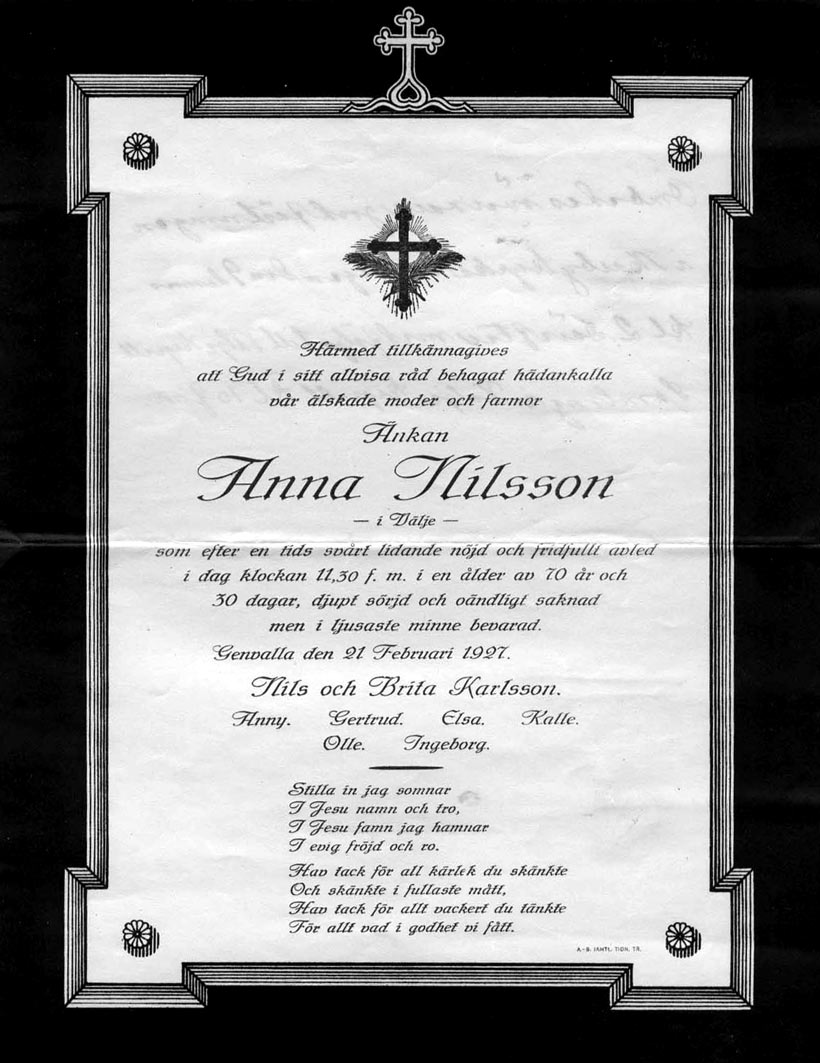 Härmed tillkännagives
att Gud i sitt allvisa råd behagat hädankalla
vår älskade moder och farmor
Änkan
Anna Nilsson
— i Välje —
som efter en tids svårt lidande nöjd och fridfullt avled
i dag klockan 11,30 f. m. i en ålder av 70 år och
30 dagar, djupt sörjd och oändligt saknad
men i ljusaste minne bevarad.
Genvalla den 21 Februari 1927.
Nils och Brita Karlsson.
Anny. Gertrud. Elsa. Kalle.
Olle. Ingeborg.
Stilla in jag somnar
I Jesu namn och tro,
I Jesu famn jag hamnar
I evig fröjd och ro.
Hav tack för all kärlek du skänkte
Och skänkte i fullaste mått,
Hav tack för allt vackert du tänkte
För allt vad i godhet vi fått.
A.-B. JÄMTL. TIDN. TR.